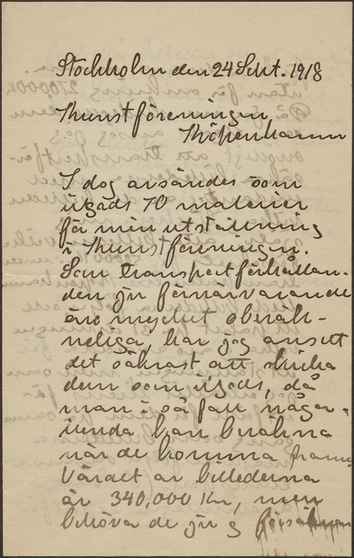 Stockholm den 24 Sept. 1918
Kunstföreningen,
Köpenhamn
I dag avsändes som
ilgods 70 målerier
för min utställning
i Kunstföreningen.
Som transportförhållan-
den ju förnärvarande
äro mycket oberäk-
neliga, har jag ansett
det såkrast att skicka
dem som ilgods, då
man i så fall någor-
lunda kan beräkna
när de komma fram.
Värdet av billederna
är 340,000 Kr, men
behöva de ju ej försäkras